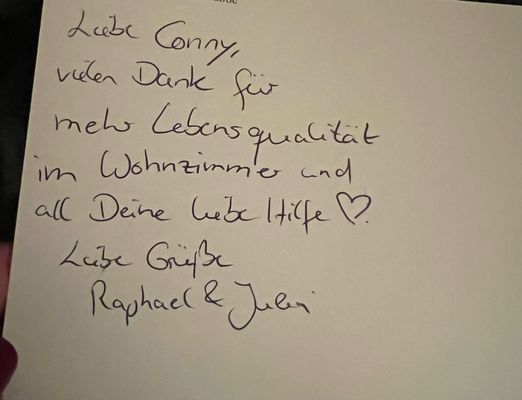 Liebe Conny,
vielen Dank für
mehr Lebensqualität
im Wohnzimmer und
all Deine liebe Hilfe ♡.
Liebe Grüße
Raphael &